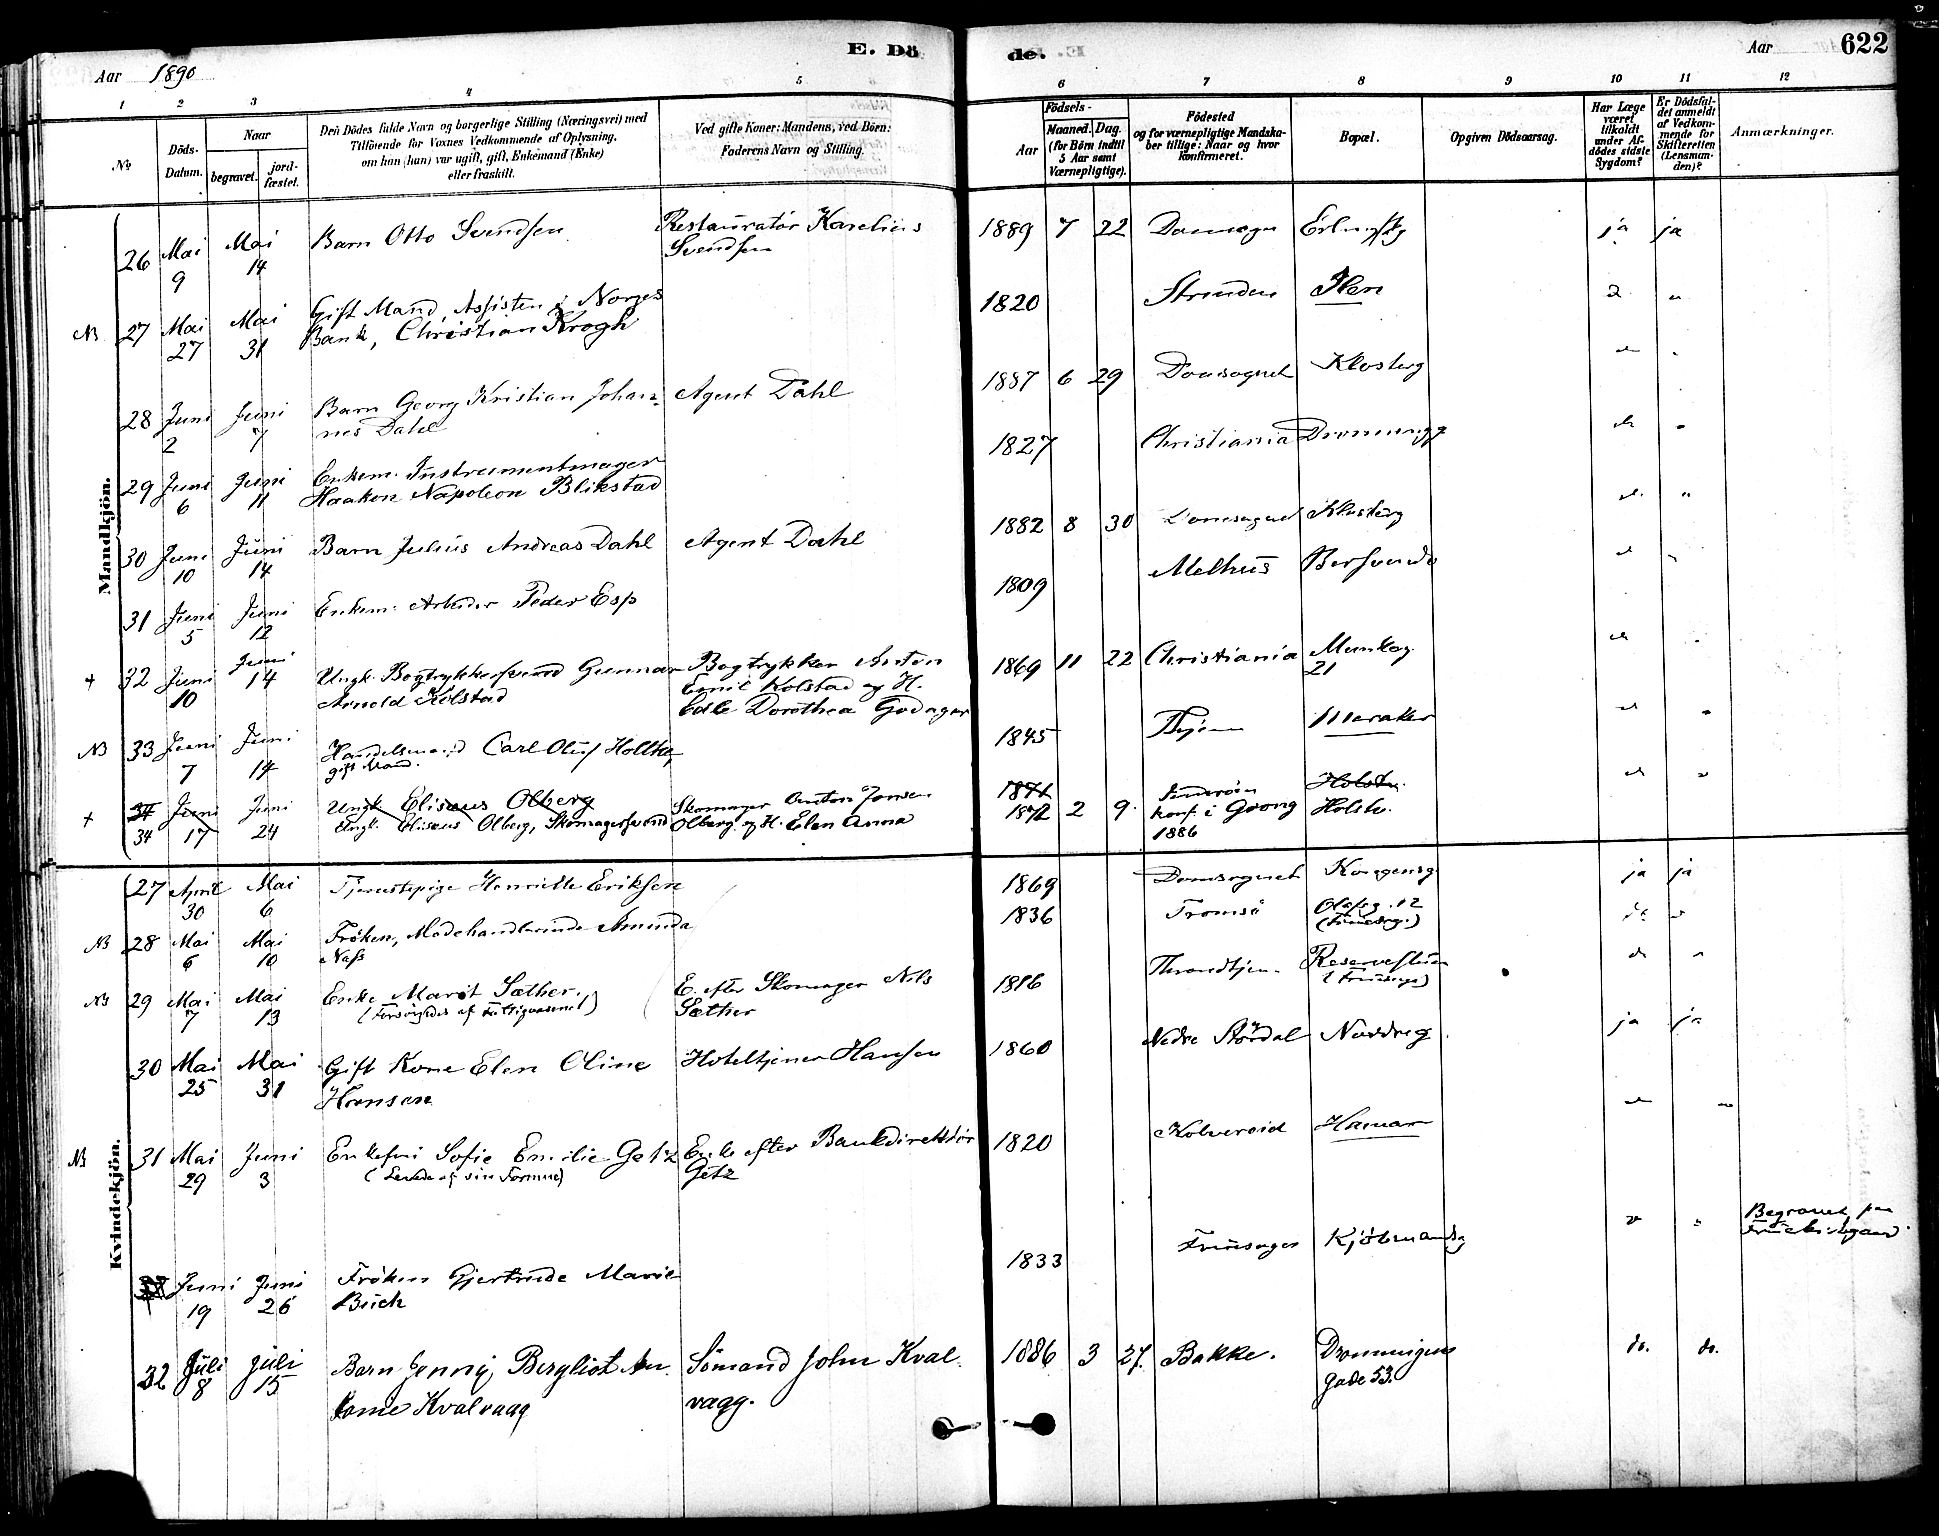 E. Dö de.
622
Aar 1890
Aar
1 2 3 4 5 6 7 8 9 10 11 12
No
Döds-Datum.
Naar
begravet.
jord-fæstet.
Den Dödes fulde Navn og borgerlige Stilling (Næringsvei) med
Tilföiende for Voxnes Vedkommende af Oplysning.
om hun (han) var ugift, gift, Enkemand (Enke)
eller fraskilt.
Ved gifte Koner: Mandens, ved Börn:
Faderens Navn og Stilling.
Födsels-
Aar
Maaned. Dag.
(for Börn indtil
5 Aar samt
Værnepligtige).
Födested
og for værnepligtige Mandska-
ber tillige: Naar og hvor
konfirmeret.
Bopæl.
Opgiven Dödsaarsag.
Har Læge
været
tilkaldt
under Af-
dödes sidste
Sygdom?
Er Dödsfal-
det anmeldt
af Vedkom-
mende for
Skifteretten
(Lensman-
den)?
Anmærkninger.
Mandkjön.
26 Mai 9 Mai 14 Barn Otto Svendsen Restauratør Karelius
Svendsen 1889 7 22 ja ja
NB 27 Mai 27 Mai 31 Gift Mand, Assisten i Norges
Bank, Christian Krogh 1820 Strinden Ilen
28 Juni 2 Juni 7 Barn Georg Kristian Johan-
nes Dahl Agent Dahl 1887 6 29 Domsognet Klosterg
29 Juni 6 Juni 11 Enkem. Instrumentmager
Haakon Napoleon Blikstad 1827 Christiania Dronningg
30 Juni 10 Juni 14 Barn Julius Andreas Dahl Agent Dahl 1882 8 30 Domsognet Klosterg
31 Juni 5 Juni 12 Enkem. Arbeider Peder Esp 1809 Melhus
+ 32 Juni 10 Juni 14 Ungk. Bogtrykkersvend Gunnar
Arnold Kolstad Bogtrykker Anton
Emil Kolstad og H.
Edle Dorothea Godager 1869 11 22 Christiania Munkeg
21
NB 33 Juni 7 Juni 14 Handelsmand Carl Oluf Holthe,
gift Mand. 1845 Meraker
+ 34 Juni 17 Juni 24 Ungk. Elisæus Olberg
34 Ungk. Elisæus Olberg, Skomagersvend Skomager Anton Jonsen
Olberg og H. Elen Anna 1871
1872 2 9. konf. i Grong
1886 Holstv.
Holstv.
Kvindekjön.
27 April 30 Mai 6 Tjenestepige Henriette Eriksen 1869 Domsognet Kongensg ja ja
NB 28 Mai 6 Mai 10 Frøken, Modehandlerinde Aminda
Næss 1836 Tromsö Olafsg. 12
NB 29 Mai 7 Mai 13 Enke Marit Sæther.
(Forsørgedes af Fattigvæsenet) E. efter Skomager Nils
Sæther 1816 Throndhjem
30 Mai 25 Mai 31 Gift Kone Elen Oline
Hansen Hoteltjener Hansen 1860 Nedre Stördal Nordreg. ja ja
NB 31 Mai 29 Juni 3 Enkefru Sofie Emilie Getz
(Levede af sin Formue) Enke efter Bankdirektör
Getz 1820 Kolvereid Hamar
Juni 19 Juni 26 Frøken Gjertrude Marie
Buck 1833 Fruesogn Kjöbmandsg Begravet paa
32 Juli 8 Juli 15 Barn Jenny Bergliot An
tonie Kvalvaag Sömand John Kval-
vaag. 1886 3 27. Bakke. Dronningens
Gade 53. do. do.